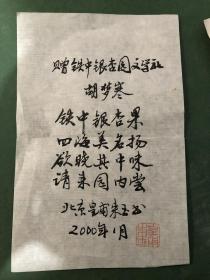 赠铁中银杏园文学社
胡梦寒
铁中银杏果
四海美名扬
欲晓其中味
请来园内尝
北京皇甫束玉书
2000年1月